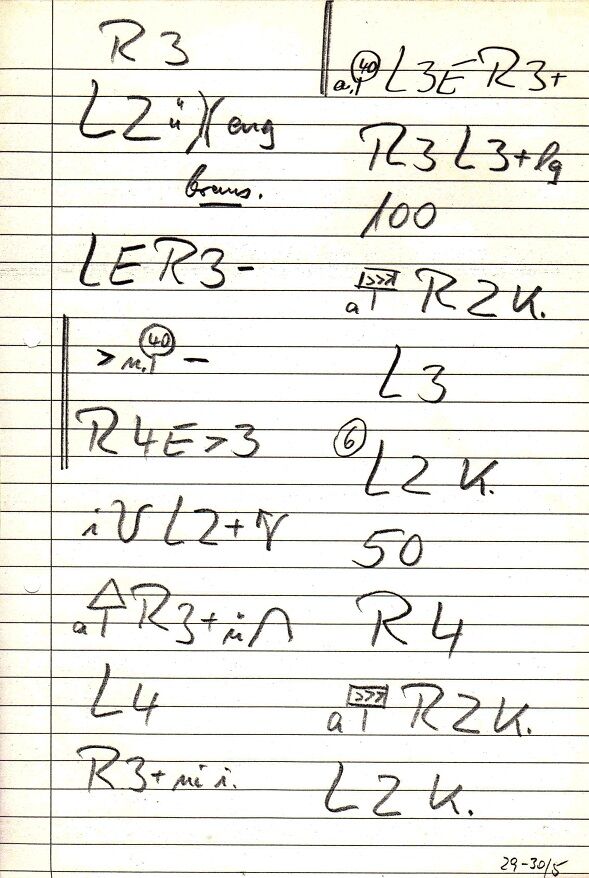 R 3
L2 ü )( eng
brems.
LER3-
> n. 40 -
R4E>3
i V L2+
a R3+ ü
L4
R3+ i.
a. 40 L3E R3+
R3 L3+ lg
100
a >>> R2 K.
L3
6 L2 K.
50
R4
a >>> R2 K.
L2 K.
29-30/5